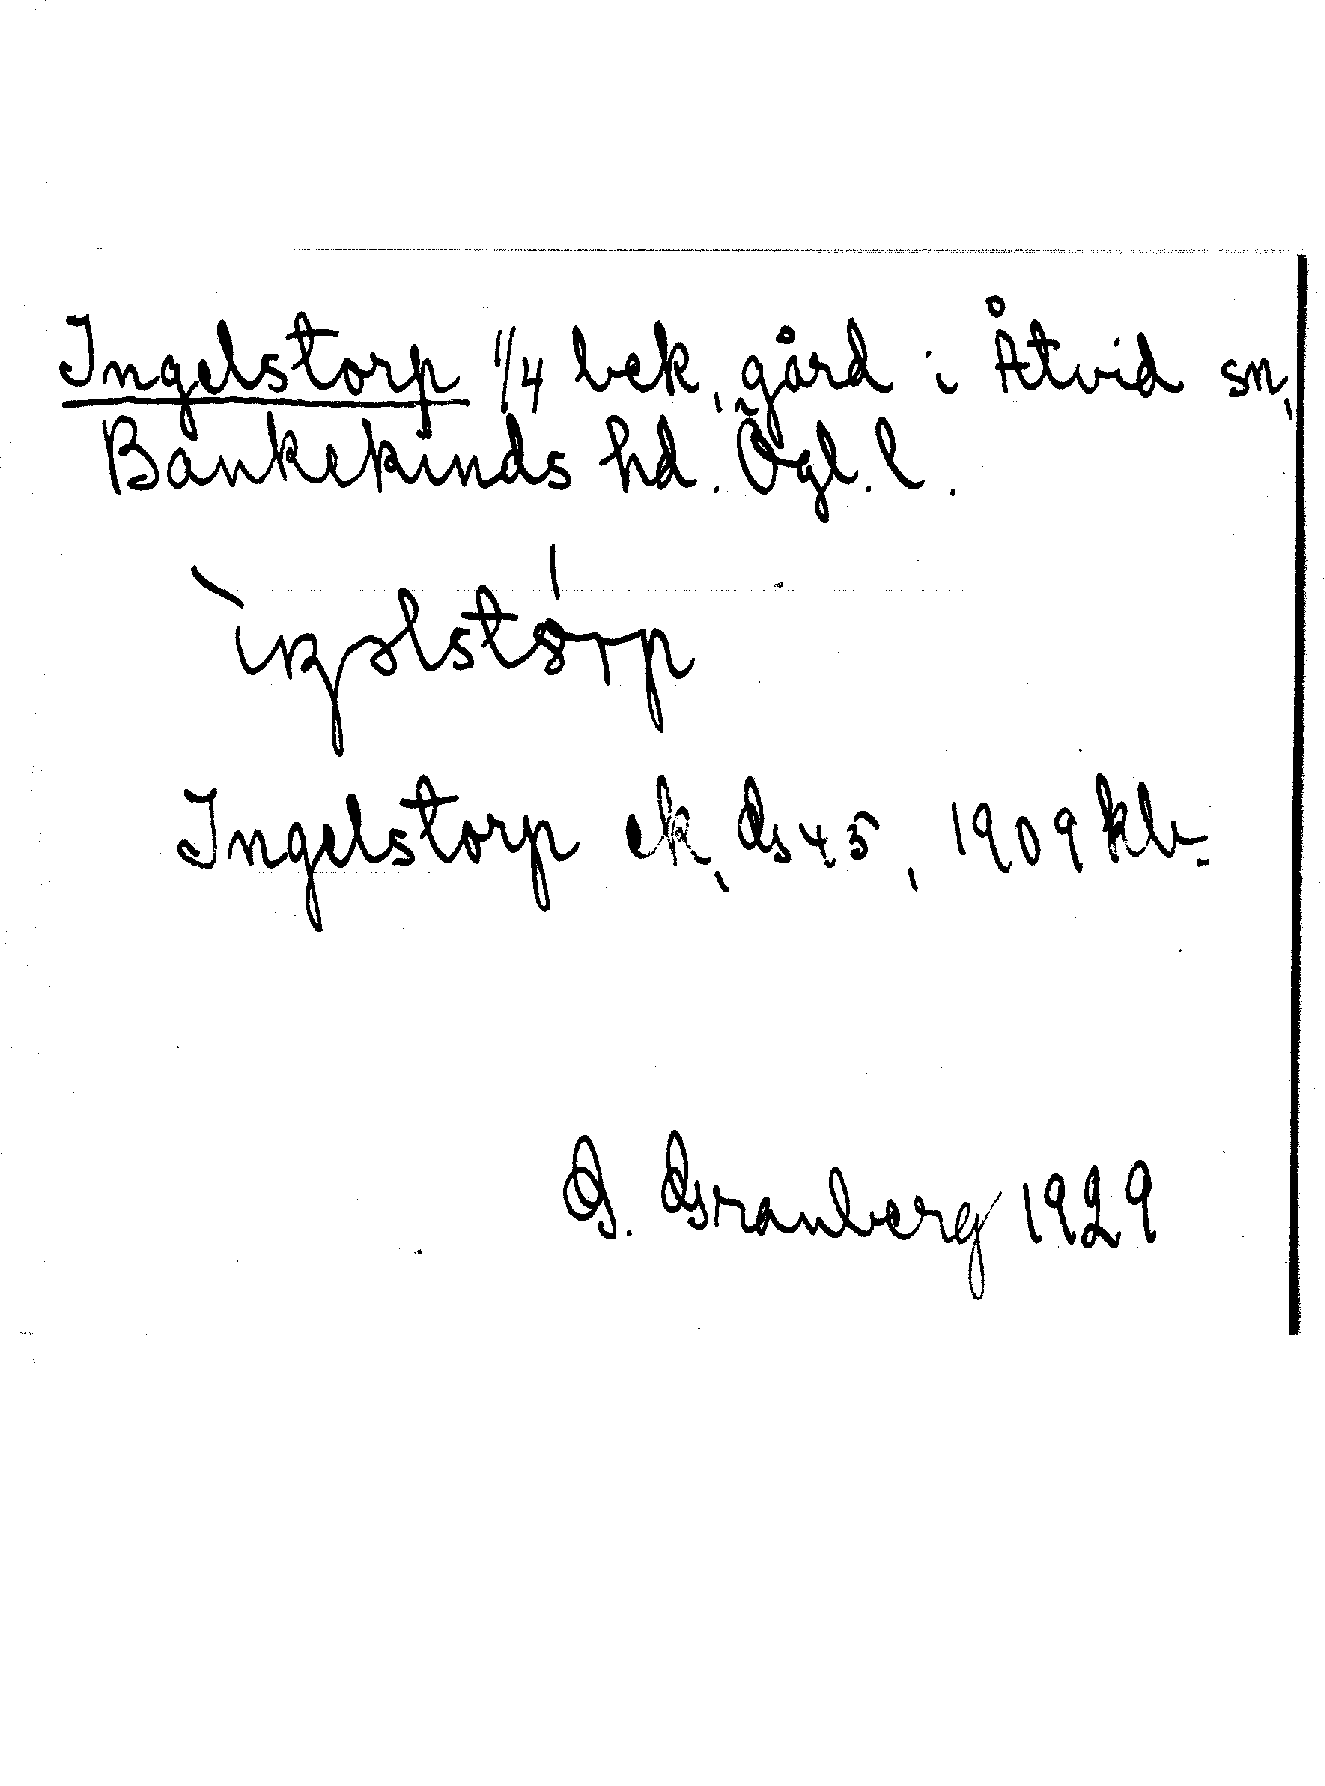 Ingelstorp 1/4 bek, gård i Åtvid sn,
Bankekinds hd. Ögl. l.
Ingelstorp ek, Gs 45, 1909 kb.
G. Granberg 1929